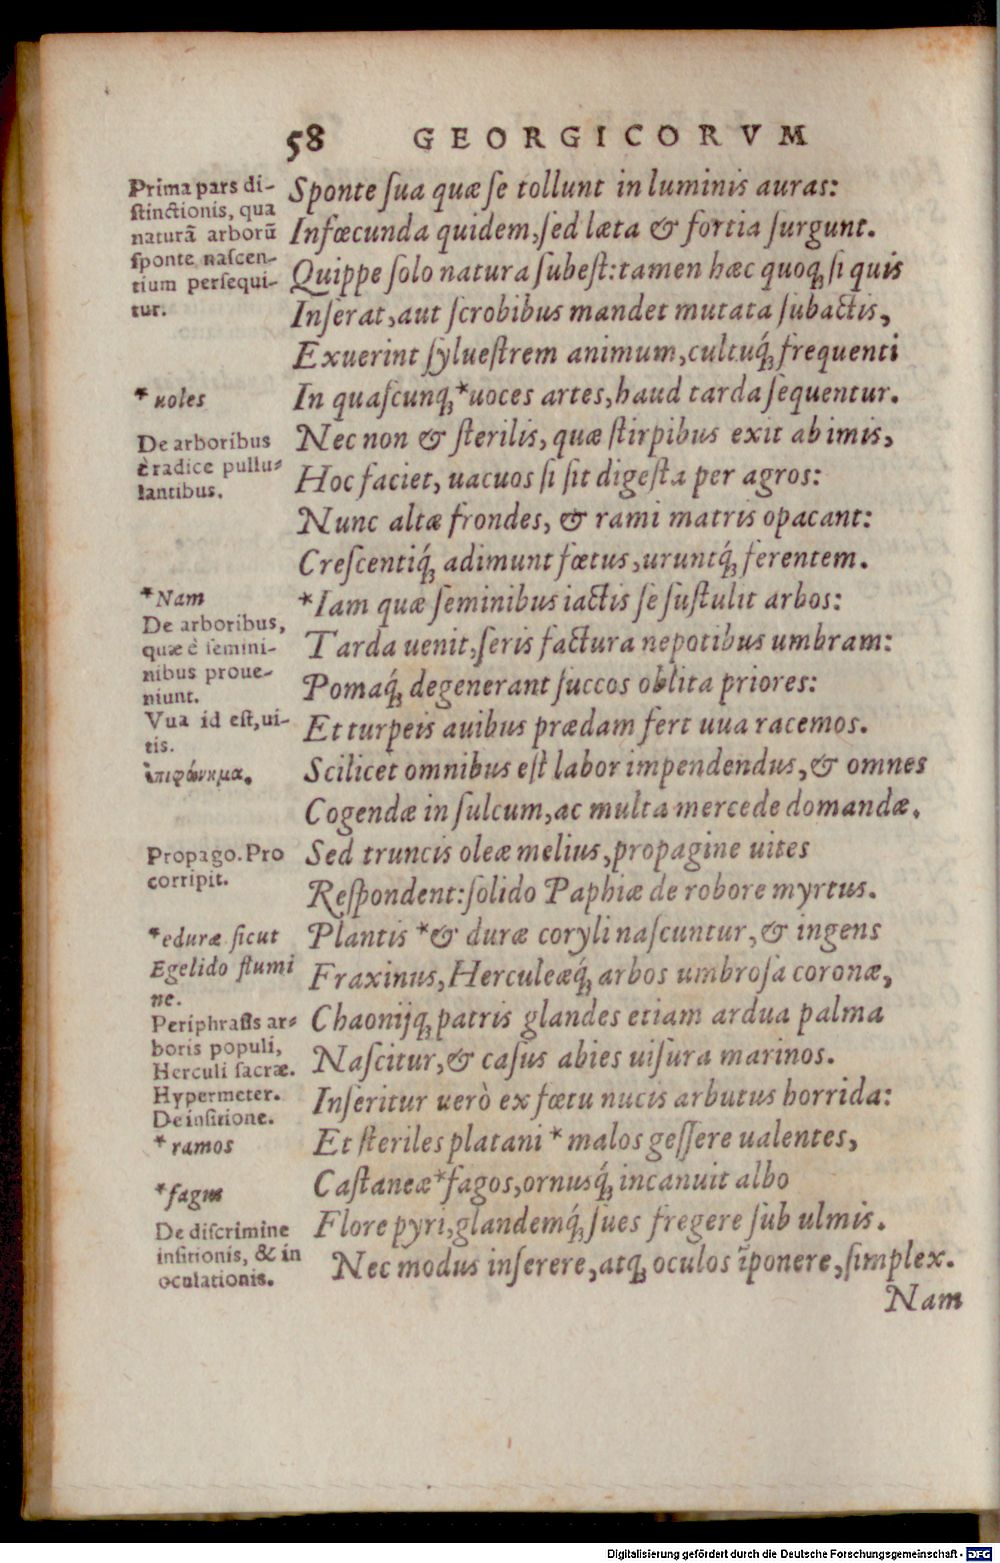 58 GEORGICORVM
Prima pars di-
stinctionis, qua
naturã arborũ
sponte nascen-
tium persequi-
tur.
Sponte sua quæ se tollunt in luminis auras:
Infœcunda quidem, sed læta & fortia surgunt.
Quippe solo natura subest: tamen hæc quoq; si quis
Inserat, aut scrobibus mandet mutata subactis,
Exuerint syluestrem animum, cultuq́; frequenti
* uoles
In quascunq; *uoces artes, haud tarda sequentur.
De arboribus
è radice pullu-
lantibus.
Nec non & sterilis, quæ stirpibus exit ab imis,
Hoc faciet, uacuos si sit digesta per agros:
Nunc altæ frondes, & rami matris opacant:
Crescentiq́; adimunt fœtus, uruntq́; ferentem.
*Nam
De arboribus,
quæ è semini-
nibus proue-
niunt.
*Iam quæ seminibus iactis se sustulit arbos:
Tarda uenit, seris factura nepotibus umbram:
Pomaq́; degenerant succos oblita priores:
Vua id est, ui-
tis.
Et turpeis auibus prædam fert uua racemos.
ἐπιφώνημα.
Scilicet omnibus est labor impendendus, & omnes
Cogendæ in sulcum, ac multa mercede domandæ.
Propago. Pro
corripit.
Sed truncis oleæ melius, propagine uites
Respondent: solido Paphiæ de robore myrtus.
*eduræ sicut
Egelido flumi
ne.
Plantis *& duræ coryli nascuntur, & ingens
Fraxinus, Herculeæq́; arbos umbrosa coronæ,
Periphrasis ar-
boris populi,
Herculi sacræ.
Chaonijq; patris glandes etiam ardua palma
Nascitur, & casus abies uisura marinos.
Hypermeter.
De insitione.
Inseritur uerò ex fœtu nucis arbutus horrida:
* ramos
Et steriles platani *malos gessere ualentes,
*fagus
Castaneæ *fagos, ornusq́; incanuit albo
Flore pyri, glandemq́; sues fregere sub ulmis.
De discrimine
insitionis, & in
oculationis.
Nec modus inserere, atq; oculos ĩponere, simplex.
Nam
Digitalisierung gefördert durch die Deutsche Forschungsgemeinschaft - DFG